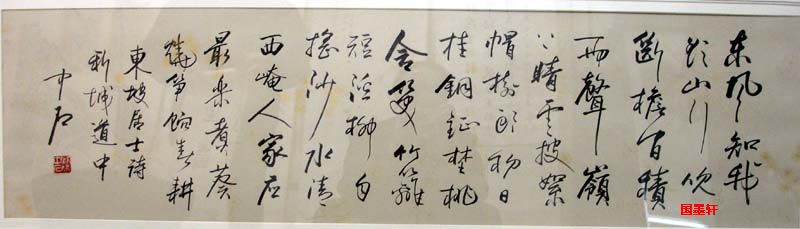 东风知我
欲山行吹
斷檐间積
雨聲嶺
上晴雲披絮
帽樹头初日
挂銅鉦埜桃
含笑竹籬
短溪柳自
搖沙水清
西崦人家应
最乐煮葵
燒笋餉春耕
東坡居士诗
新城道中
中石
国墨轩